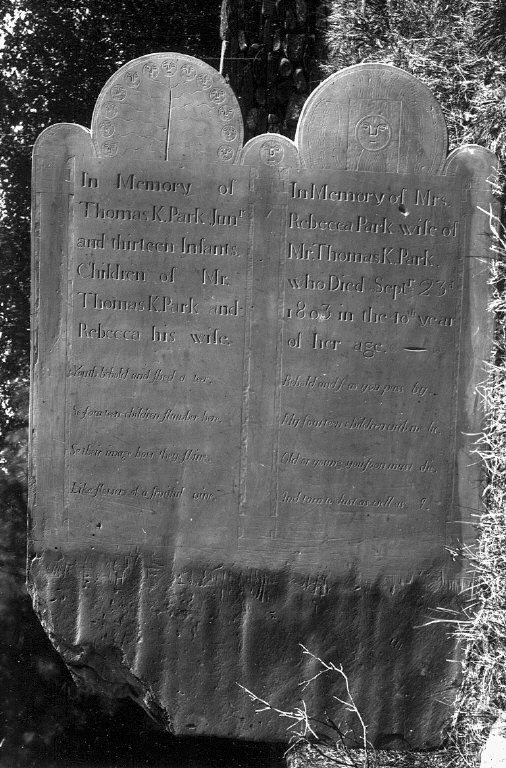 In Memory of
Thomas K. Park Junr
and thirteen Infants,
Children of Mr.
Thomas K. Park and
Rebecca his wife.
Youth behold and shed a tear,
Se fourteen children slumber here,
Se their image how they shine,
Like flowers of a fruitful vine.
In Memory of Mrs.
Rebecca Park wife of
Mr. Thomas K. Park,
who Died Septr. 23d
1803 in the 40th year
of her age.
Behold and se as you pass by,
My fourteen children with me lie,
Old or young you soon must die,
And turn to dust as well as I.